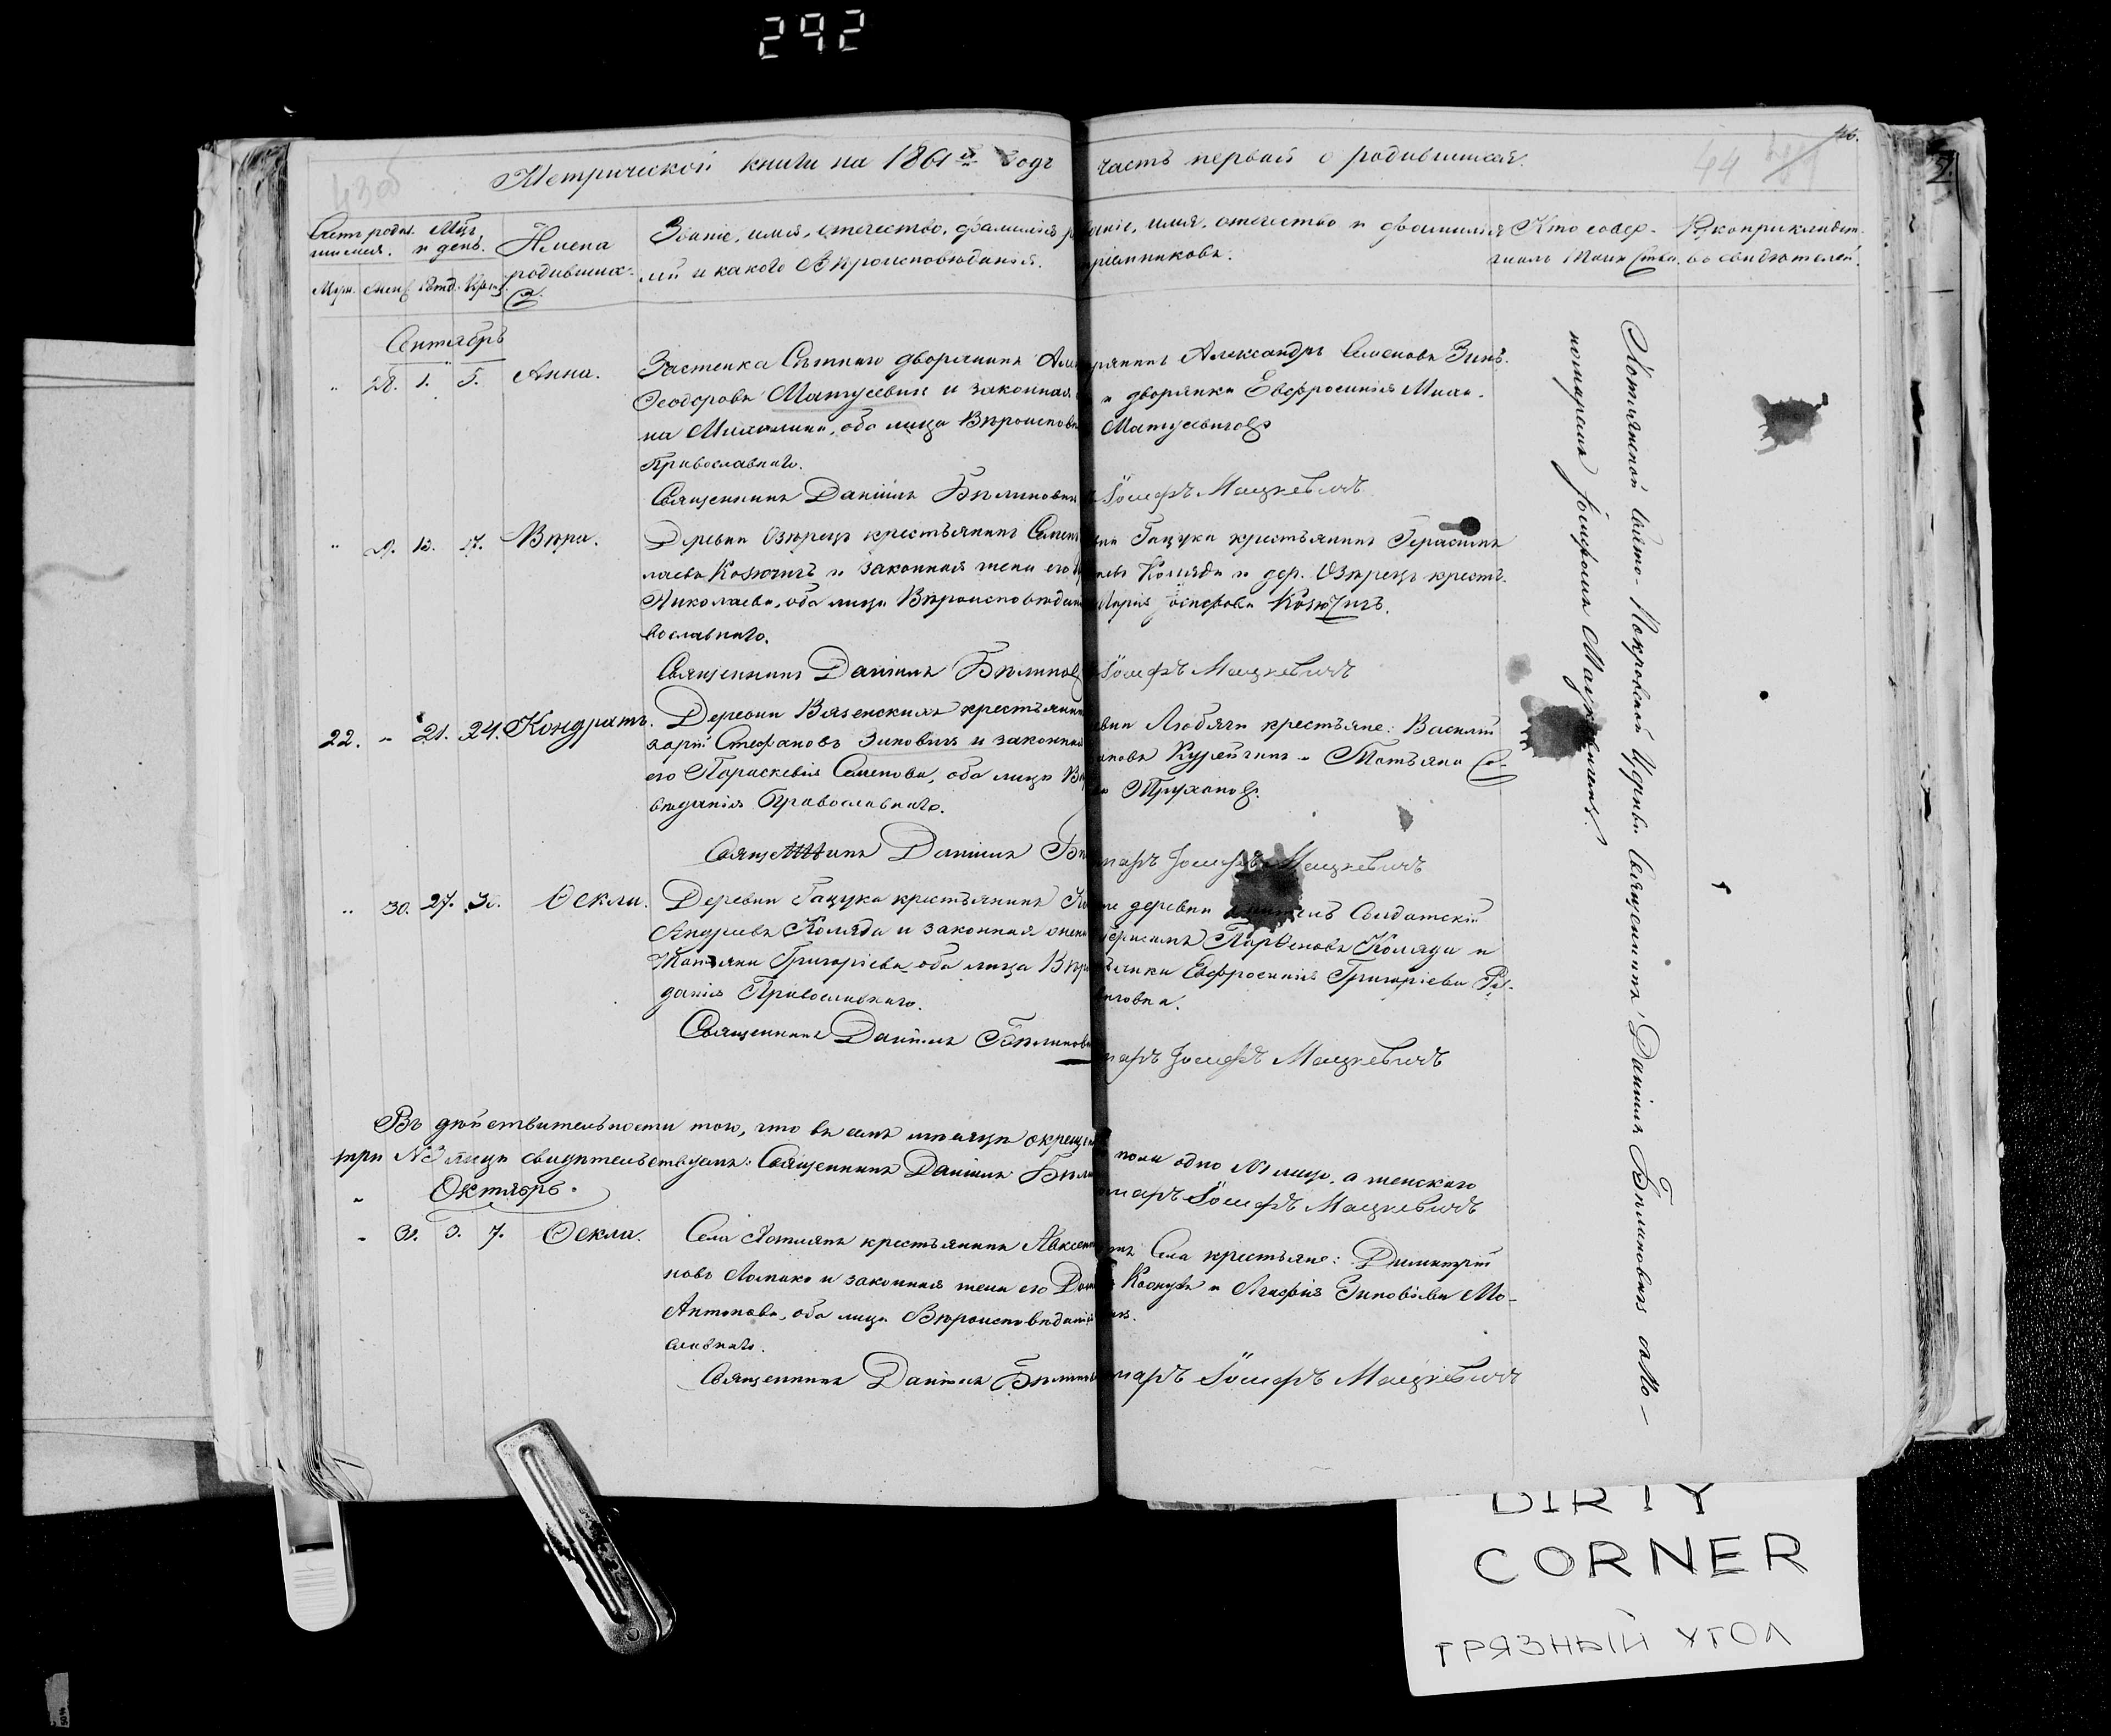 292
Метрической книги на 1861й Годъ часть первая о родившихся.
43об
44
46.
Счетъ родив-шихся. Мцъ и день.
Муж. Жен. Рожд. Крещ.
Имена родивших-ся.
Званіе, имя, отечество, фамилія
ли и какого Вѣроисповѣданія.
званіе, имя, отечество и фамилія
пріемниковъ.
Кто совер-
шалъ Таинство.
Рукоприкладст-
во свидѣтелей.
Сентябрь
" 28. 1. 5. Анна.
Застенка Сътнаго дворянинъ
Ѳеодоровъ Матусевичъ и законная
на Михалина, оба лица Вѣроисповѣ
Православнаго.
Священникъ Даніилъ Бѣлиновичъ
Александръ Семеновъ Зинь-
и дворянка Евфросинія Миха-
Матусевичова
Іосифъ Мацкевичъ
" 29. 13. 17. Вѣра.
Деревни Озѣрецъ крестьянинъ Семенъ
лаевъ Козючицъ и законная жена его
Николаева, оба лица Вѣроисповѣдан
вославнаго.
Священникъ Даніилъ Бѣлинов
Гацука крестьянинъ Герасимъ
Коляда и дер. Озѣрецъ крестъ-
Марія Іосифова Козючицъ.
Іосифъ Мацкевичъ
22. " 21. 24. Кондратъ.
Деревни Вязенскихъ крестьянинъ
Стефановъ Зиновичъ и законная
его Параскевія Семенова, оба лица Вѣ
вѣданія Православнаго.
Священникъ Даніилъ Бѣ
Любячи крестьяне: Василій
Курейчикъ и Татьяна Се-
Труханов
Іосифъ Мацкевичъ
" 30. 27. 30. Ѳекла.
Деревни Гацука крестьянинъ
Андреевъ Коляда и законная жена
Татьяна Григоріева оба лица Вѣро
данія Православнаго.
Священникъ Даніилъ Бѣлинови
деревни житель Солдатскій
Герасимъ Парѳеновъ Коляда и
Евфросинія Григоріева
Іосифъ Мацкевичъ
Въ дѣйствительности того, что въ семъ мѣсяцѣ окрещено
три №3 лица свидѣтельствуемъ: Священникъ Даніилъ Бѣли
пола одно №1 лице, а женскаго
Іосифъ Мацкевичъ
Октябрь.
" 31. 3. 7. Ѳекла.
Села крестьянинъ Авксен
новъ Ломако и законная жена его Дом
Антонова, оба лица Вѣроисповѣданія
славнаго.
Священникъ Даніилъ Бѣлинов
Села крестьяне: Димитрій
и Агафія Зиновіева Мо-
Іосифъ Мацкевичъ
Свято-Покровской Церкви Священникъ Даніилъ Бѣлиновичъ съ по-
номаремъ Іосифомъ Мацкевичемъ.
DIRTY
CORNER
ГРЯЗНЫЙ УГОЛ